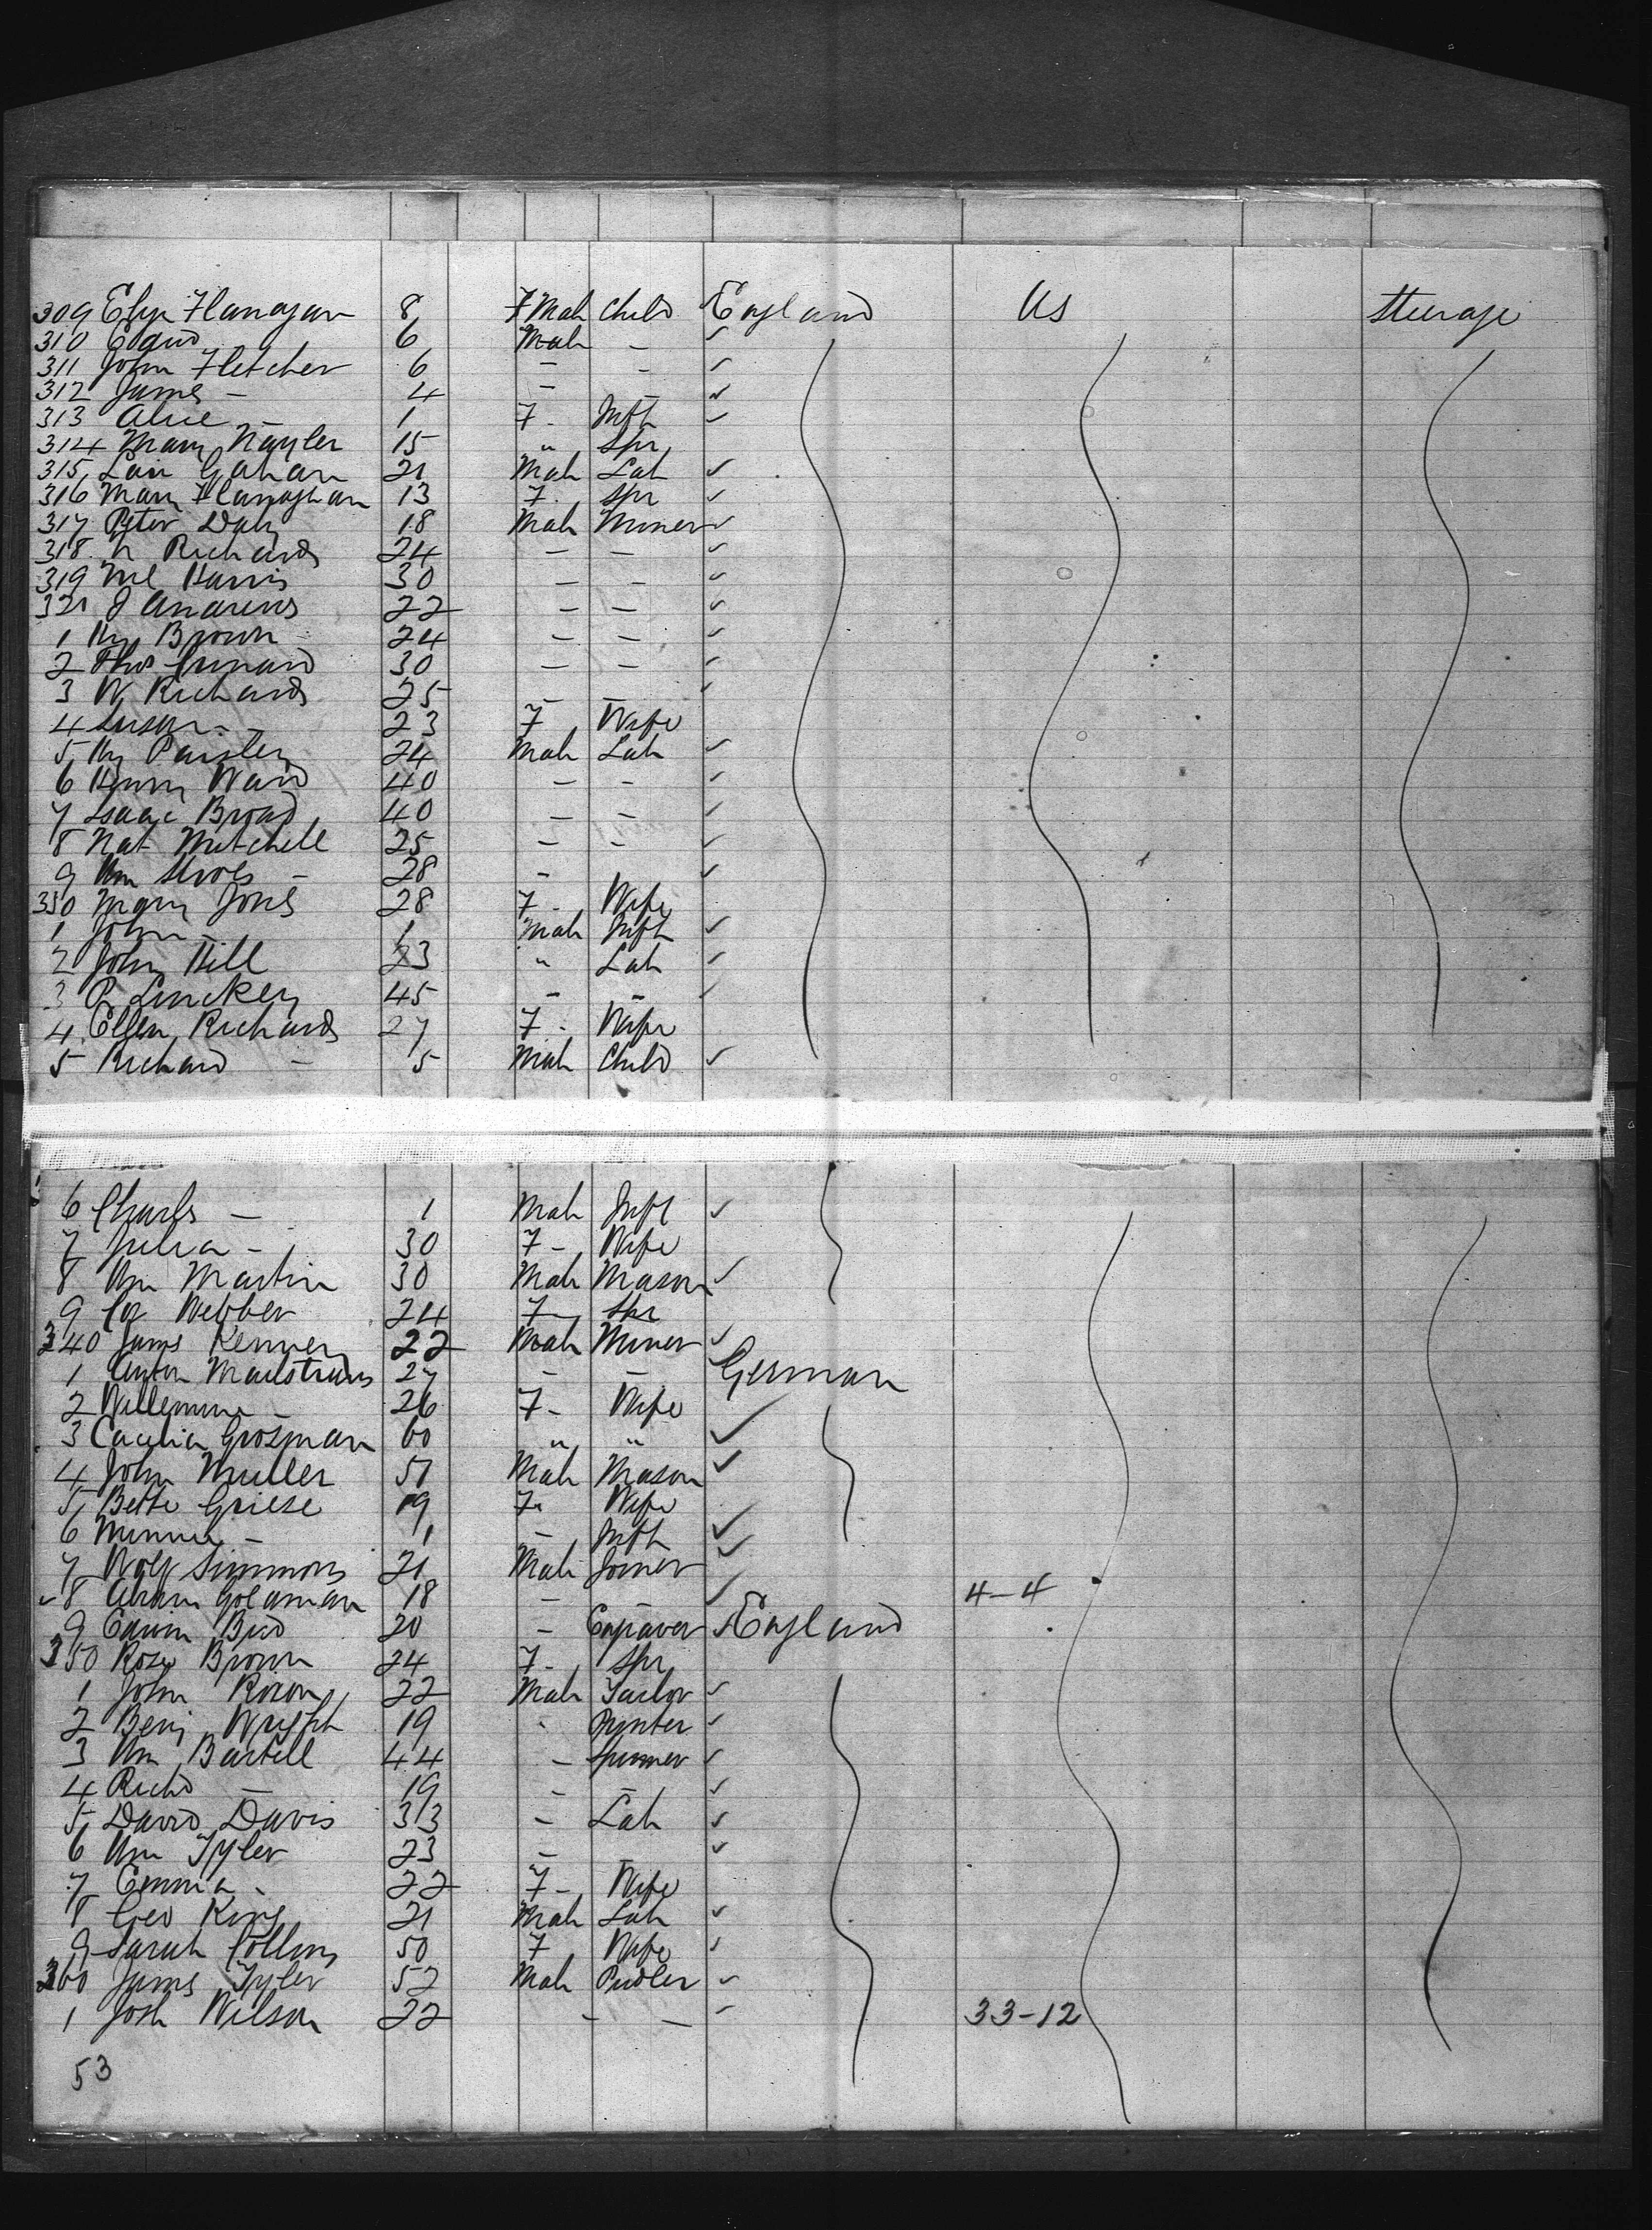 309 Eliza Flanagan 8 F Male Child England US Steerage
310 Edwd 6 Male -
311 John Fletcher 6 - -
312 James - 4 - -
313 Alice - 1 F - Inft
314 Mary Nayler 15 " Spr
315 Gahan 21 Male Lab
316 Mary Flanaghan 13 F. Spr
317 Peter Daly 18 Male Miner
318 N Richards 24 - -
319 Ml Harris 30 - -
321 J Andrews 22 - -
1 Hy Brown 24 - -
2 Thos 30 - -
3 W Richards 25 - -
4 Susan - 23 F Wife
5 Hy Paisley 24 Male Lab
6 Henry Ward 40 - -
7 Isaac Broad 40 - -
8 Nat Mitchell 25 - -
9 Wm - 28 -
330 Mary Jones 28 F - Wife
1 John - 1 Male Inft
2 John Hill 23 " Lab
3 P 45 - -
4 Ellen Richards 27 F - Wife
5 Richard - 5 Male Child
6 Charles - 1 Male Inft
7 Julia - 30 F - Wife
8 Wm Martin 30 Male Mason
9 Webber 24 F - Spr
340 James Kenney 22 Male Miner
1 Anton 27 - - German
2 Willemine - 26 F - Wife
3 Cacilia Grosman 60 " "
4 John Muller 51 Male Mason
5 Bette Griese 19 F " Wife
6 Minnie - 1 - Inft
7 Wolf Simmons 21 Male Joiner
8 Abram Goldman 18 - - 4-4
9 Edwin Bird 20 - Engraver England
350 Rose Brown 24 F - Spr
1 John 22 Male Tailor
2 Benj Wright 19 " Printer
3 Wm Bartell 44 - Spinner
4 Richd - 19 - -
5 David Davis 33 - Lab
6 Wm Tyler 23 - -
7 Emma - 22 F - Wife
8 Geo King 21 Male Lab
9 Sarah Collins 50 F Wife
360 James Tyler 52 Male Pudler
1 Josh Wilson 22 - - 33-12
53